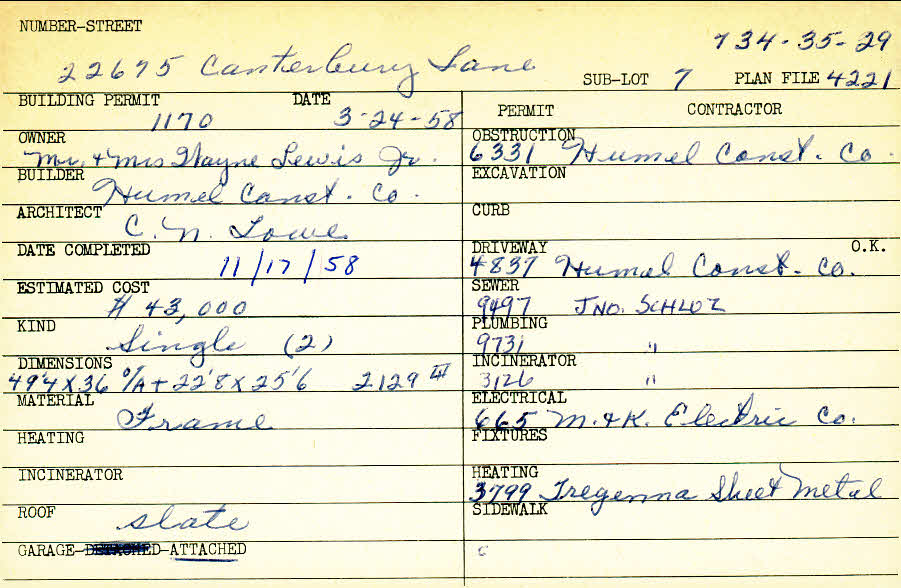 NUMBER-STREET
734-35-29
22675 Canterbury Lane
SUB-LOT 7 PLAN FILE 4221
BUILDING PERMIT DATE
1170 3-24-58
OWNER
Mr. & Mrs Wayne Lewis Jr.
BUILDER
Humel Const. Co.
ARCHITECT
C. N. Lowe
DATE COMPLETED
11/17/58
ESTIMATED COST
$ 43,000
KIND
Single (2)
DIMENSIONS
49'4 X 36 O/A + 22'8 X 25'6 2129
MATERIAL
Frame
HEATING
INCINERATOR
ROOF
slate
GARAGE-DETACHED-ATTACHED
PERMIT CONTRACTOR
OBSTRUCTION
6331 Humel Const. Co.
EXCAVATION
CURB
DRIVEWAY O.K.
4837 Humel Const. Co.
SEWER
9497 JNO. SCHLOZ
PLUMBING
9731 "
INCINERATOR
3126 "
ELECTRICAL
665 M. & K. Electric Co.
FIXTURES
HEATING
3799 Tregenna Sheet Metal
SIDEWALK